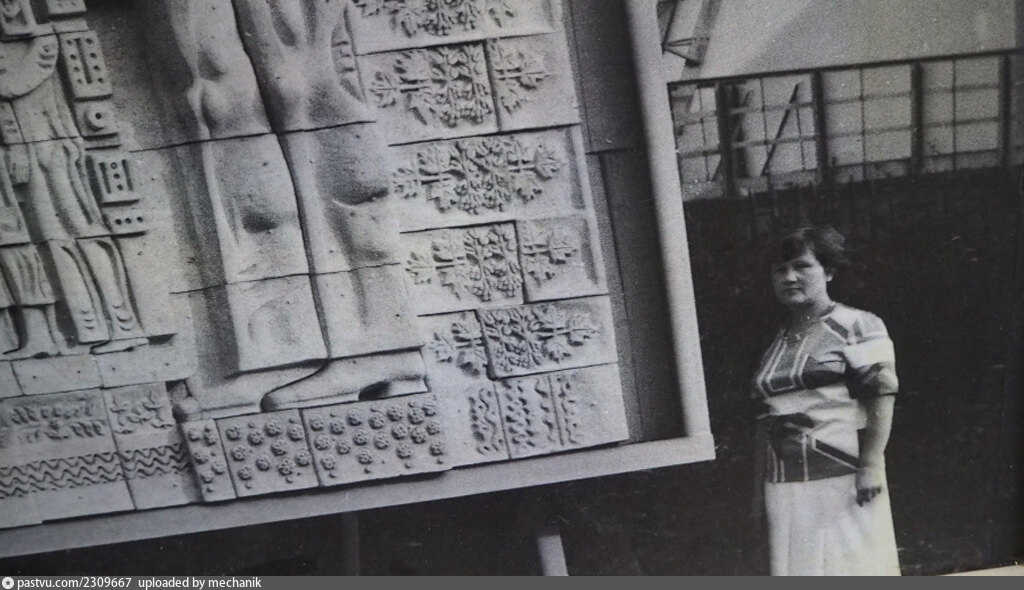 pastvu.com/2309667 uploaded by mechanik